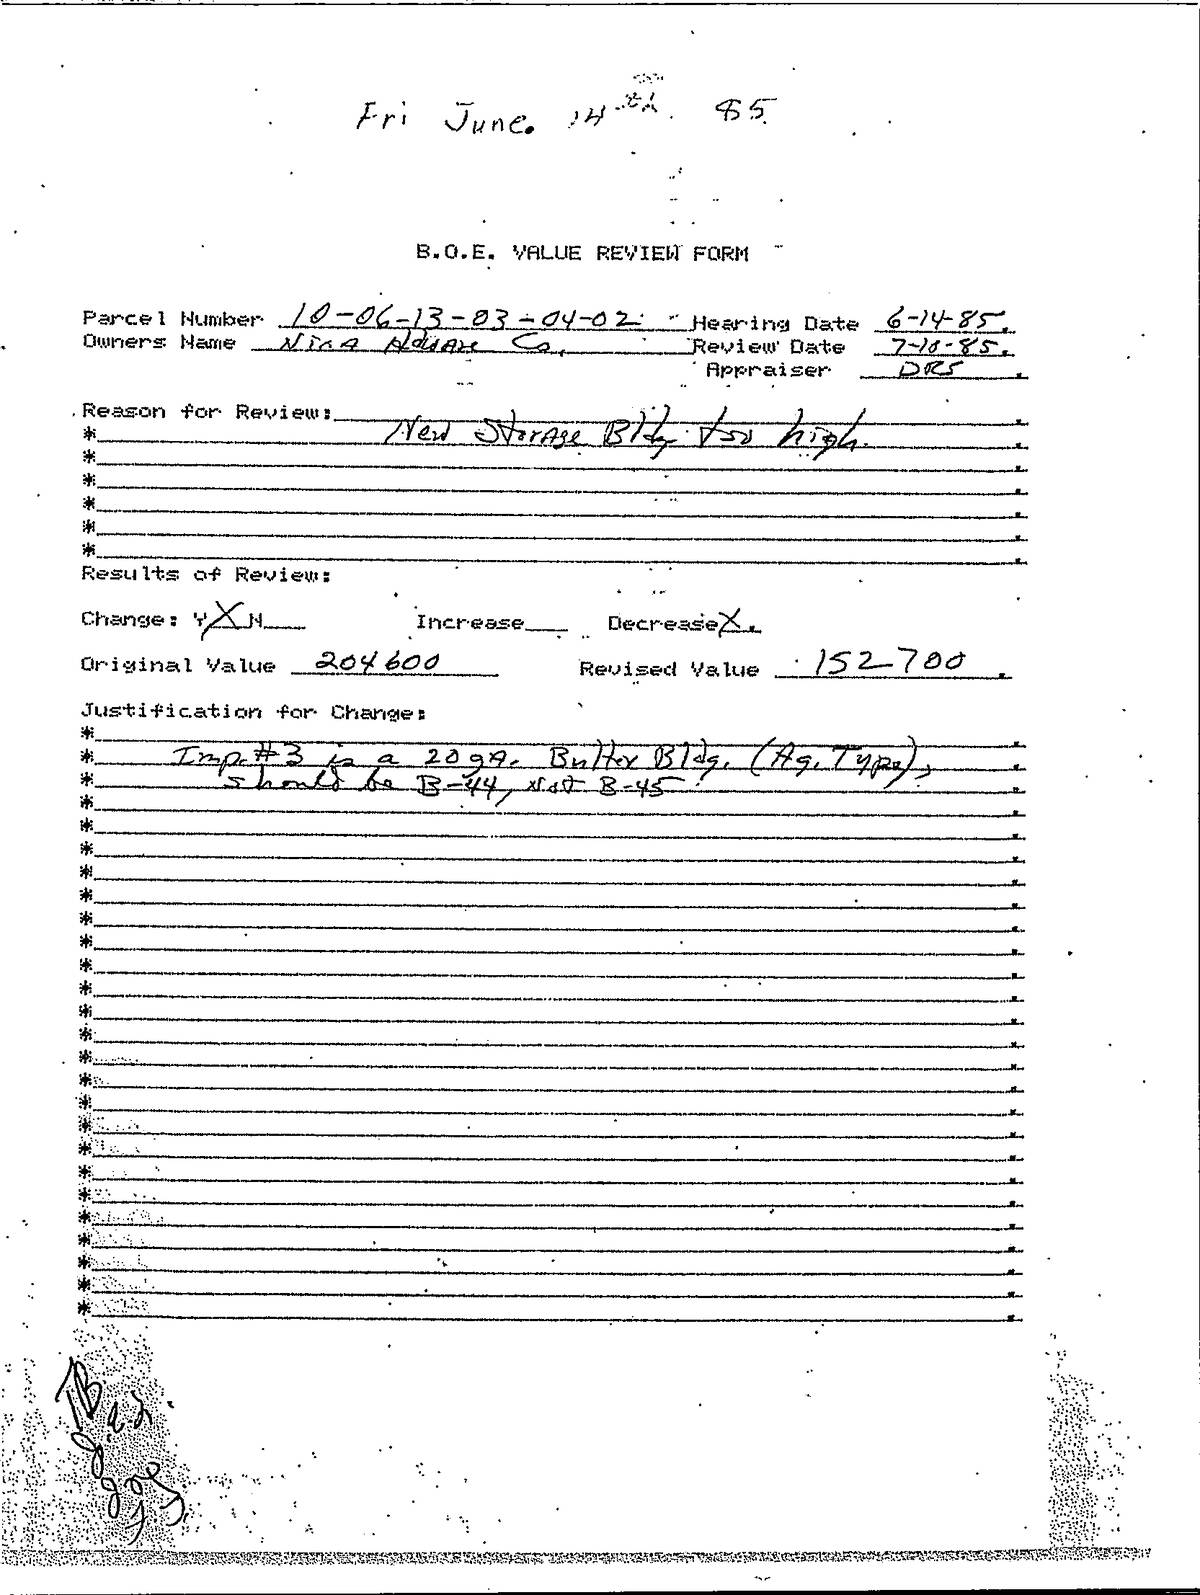 Fri June. 14th. 85.
B.O.E. VALUE REVIEW FORM
Parcel Number 10-06-13-03-04-02 Hearing Date 6-14-85.
Owners Name Co. Review Date 7-10-85.
Appraiser DRS
Reason for Review:
* New Storage Bldg. too high.
*
*
*
*
*
Results of Review:
Change: Y X N Increase Decrease X.
Original Value 204600 Revised Value 152700
Justification for Change:
*
* Imp. #3 is a 20 gA. Butler Bldg. (Ag. Type),
* should be B-44, Not B-45
*
*
*
*
*
*
*
*
*
*
*
*
*
*
*
*
*
*
*
*
*
*
*